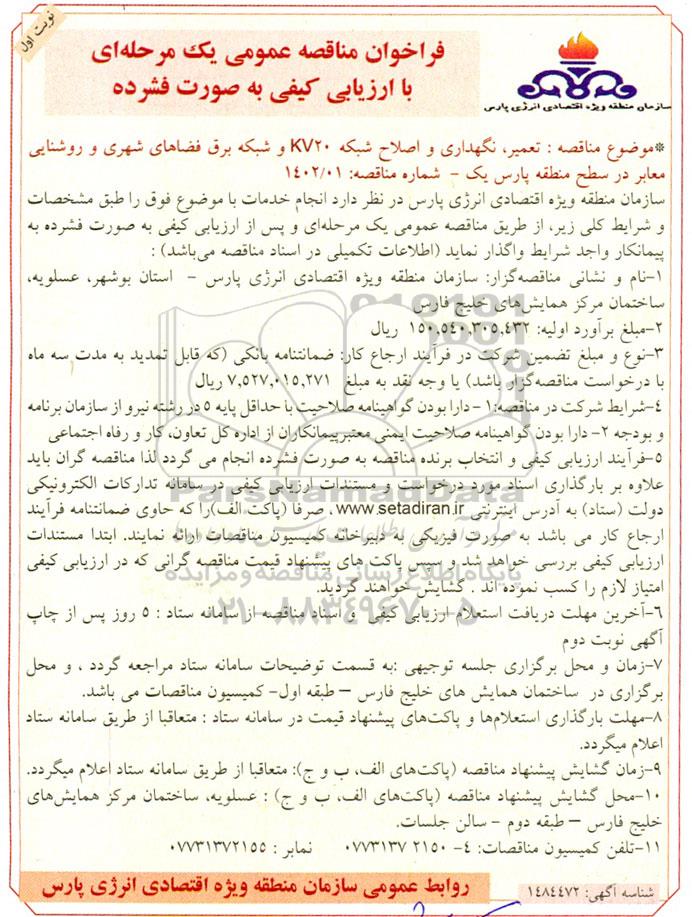 نوبت اول
فراخوان مناقصه عمومی یک مرحله‌ای
با ارزیابی کیفی به صورت فشرده
سازمان منطقه ویژه اقتصادی انرژی پارس
*موضوع مناقصه : تعمیر، نگهداری و اصلاح شبکه KV۲۰ و شبکه برق فضاهای شهری و روشنایی
معابر در سطح منطقه پارس یک – شماره مناقصه: ۱۴۰۲/۰۱
سازمان منطقه ویژه اقتصادی انرژی پارس در نظر دارد انجام خدمات با موضوع فوق را طبق مشخصات
و شرایط کلی زیر، از طریق مناقصه عمومی یک مرحله‌ای و پس از ارزیابی کیفی به صورت فشرده به
پیمانکار واجد شرایط واگذار نماید (اطلاعات تکمیلی در اسناد مناقصه می‌باشد) :
۱-نام و نشانی مناقصه‌گزار: سازمان منطقه ویژه اقتصادی انرژی پارس – استان بوشهر، عسلویه،
ساختمان مرکز همایش‌های خلیج فارس
۲-مبلغ برآورد اولیه: ۱۵۰,۵۴۰,۳۰۵,۴۳۲ ریال
۳-نوع و مبلغ تضمین شرکت در فرآیند ارجاع کار: ضمانتنامه بانکی (که قابل تمدید به مدت سه ماه
با درخواست مناقصه‌گزار باشد) یا وجه نقد به مبلغ ۷,۵۲۷,۰۱۵,۲۷۱ ریال
۴-شرایط شرکت در مناقصه:۱- دارا بودن گواهینامه صلاحیت با حداقل پایه ۵ در رشته نیرو از سازمان برنامه
و بودجه ۲- دارا بودن گواهینامه صلاحیت ایمنی معتبرپیمانکاران از اداره کل تعاون، کار و رفاه اجتماعی
۵-فرآیند ارزیابی کیفی و انتخاب برنده مناقصه به صورت فشرده انجام می گردد لذا مناقصه گران باید
علاوه بر بارگذاری اسناد مورد درخواست و مستندات ارزیابی کیفی در سامانه تدارکات الکترونیکی
دولت (ستاد) به آدرس اینترنتی www.setadiran.ir ، صرفا (پاکت الف)را که حاوی ضمانتنامه فرآیند
ارجاع کار می باشد به صورت فیزیکی به دبیرخانه کمیسیون مناقصات ارائه نمایند. ابتدا مستندات
ارزیابی کیفی بررسی خواهد شد و سپس پاکت های پیشنهاد قیمت مناقصه گرانی که در ارزیابی کیفی
امتیاز لازم را کسب نموده اند . گشایش خواهند گردید.
۶-آخرین مهلت دریافت استعلام ارزیابی کیفی و اسناد مناقصه از سامانه ستاد : ۵ روز پس از چاپ
آگهی نوبت دوم
۷-زمان و محل برگزاری جلسه توجیهی :به قسمت توضیحات سامانه ستاد مراجعه گردد ، و محل
برگزاری در ساختمان همایش های خلیج فارس – طبقه اول- کمیسیون مناقصات می باشد.
۸-مهلت بارگذاری استعلام‌ها و پاکت‌های پیشنهاد قیمت در سامانه ستاد : متعاقبا از طریق سامانه ستاد
اعلام میگردد.
۹-زمان گشایش پیشنهاد مناقصه (پاکت‌های الف، ب و ج): متعاقبا از طریق سامانه ستاد اعلام میگردد.
۱۰-محل گشایش پیشنهاد مناقصه (پاکت‌های الف، ب و ج) : عسلویه، ساختمان مرکز همایش‌های
خلیج فارس – طبقه دوم - سالن جلسات.
۱۱-تلفن کمیسیون مناقصات: ۴- ۲۱۵۰ ۰۷۷۳۱۳۷ نمابر : ۰۷۷۳۱۳۷۲۱۵۵
روابط عمومی سازمان منطقه ویژه اقتصادی انرژی پارس
شناسه آگهی: ۱۴۸۴۴۷۲
ParsNamadData
پایگاه اطلاع رسانی مناقصه و مزایده
۰۲۱-۸۸۳۴۹۶۷۰-۵